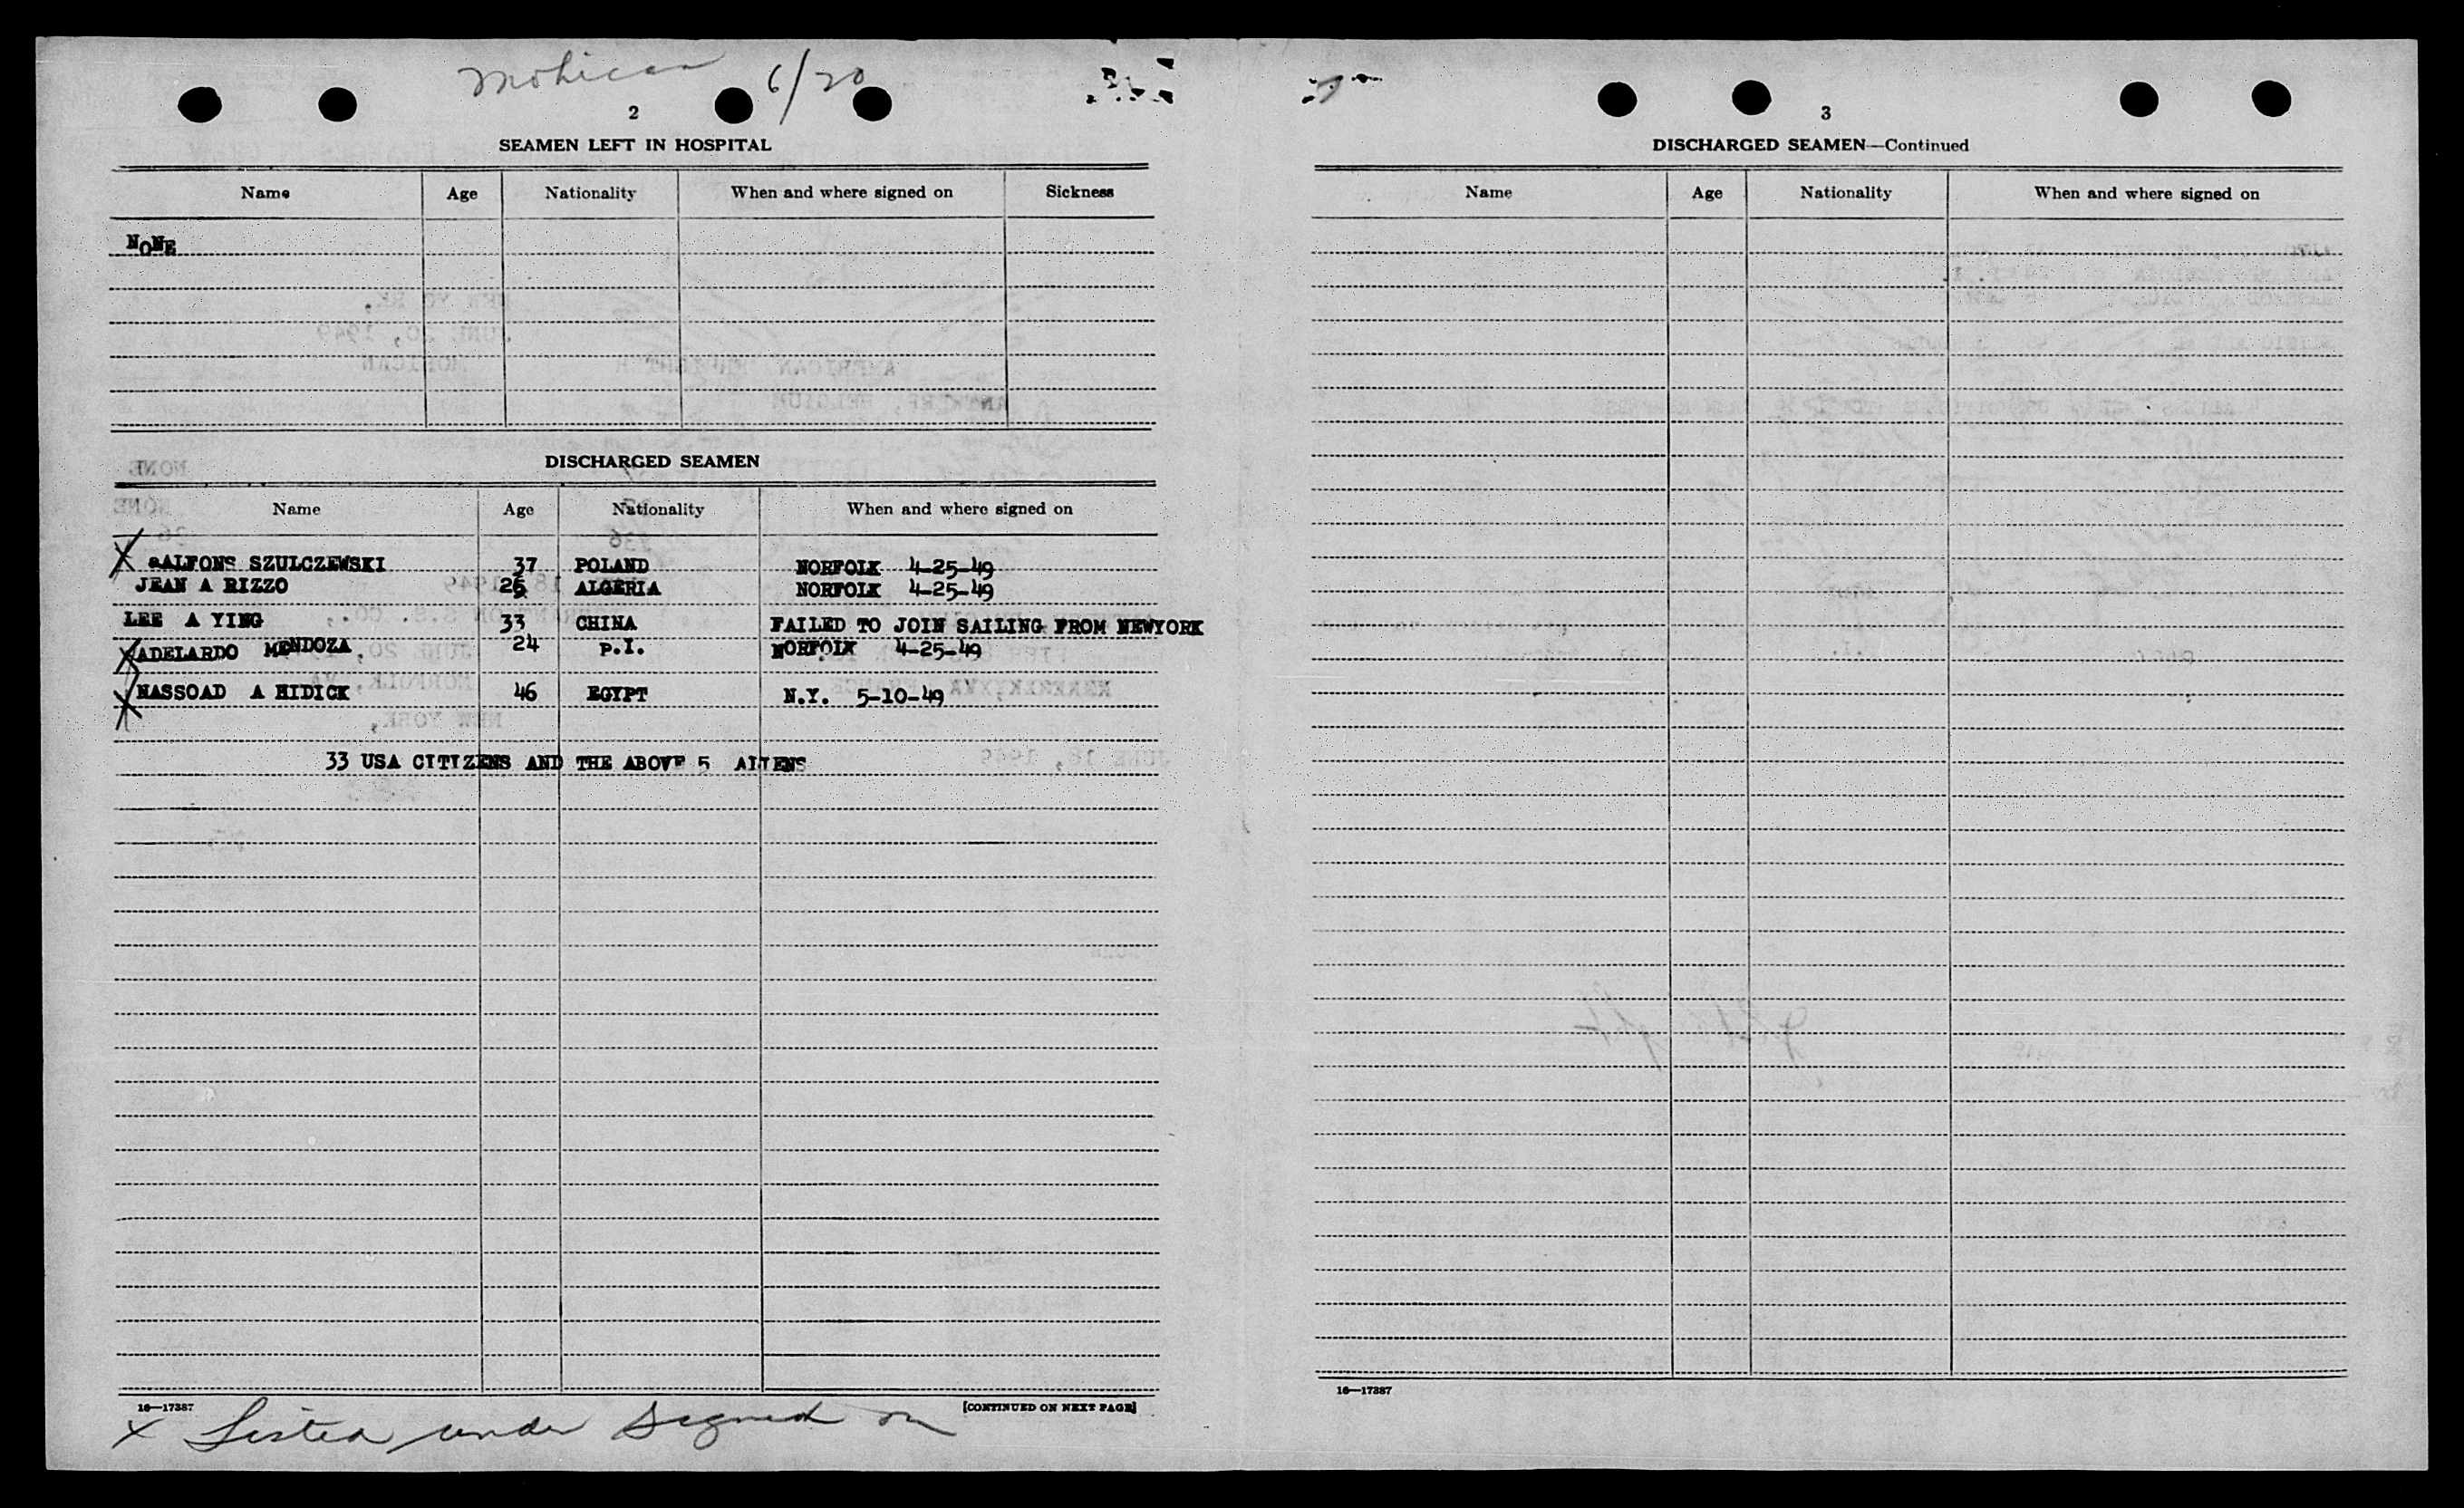 Mohican 6/20
2
SEAMEN LEFT IN HOSPITAL
Name Age Nationality When and where signed on Sickness
NONE
DISCHARGED SEAMEN
Name Age Nationality When and where signed on
X aALFONS SZULCZEWSKI 37 POLAND NORFOLK 4-25-49
JEAN A RIZZO 26 ALGERIA NORFOLK 4-25-49
LEE A YING 33 CHINA FAILED TO JOIN SAILING FROM NEWYORK
X ADELARDO MENDOZA 24 P.I. NORFOLK 4-25-49
X NASSOAD A HIDICK 46 EGYPT N.Y. 5-10-49
33 USA CITIZENS AND THE ABOVE 5 ALIENS
16—17387 [CONTINUED ON NEXT PAGE]
x Listed under signed on
3
DISCHARGED SEAMEN—Continued
Name Age Nationality When and where signed on
16—17387